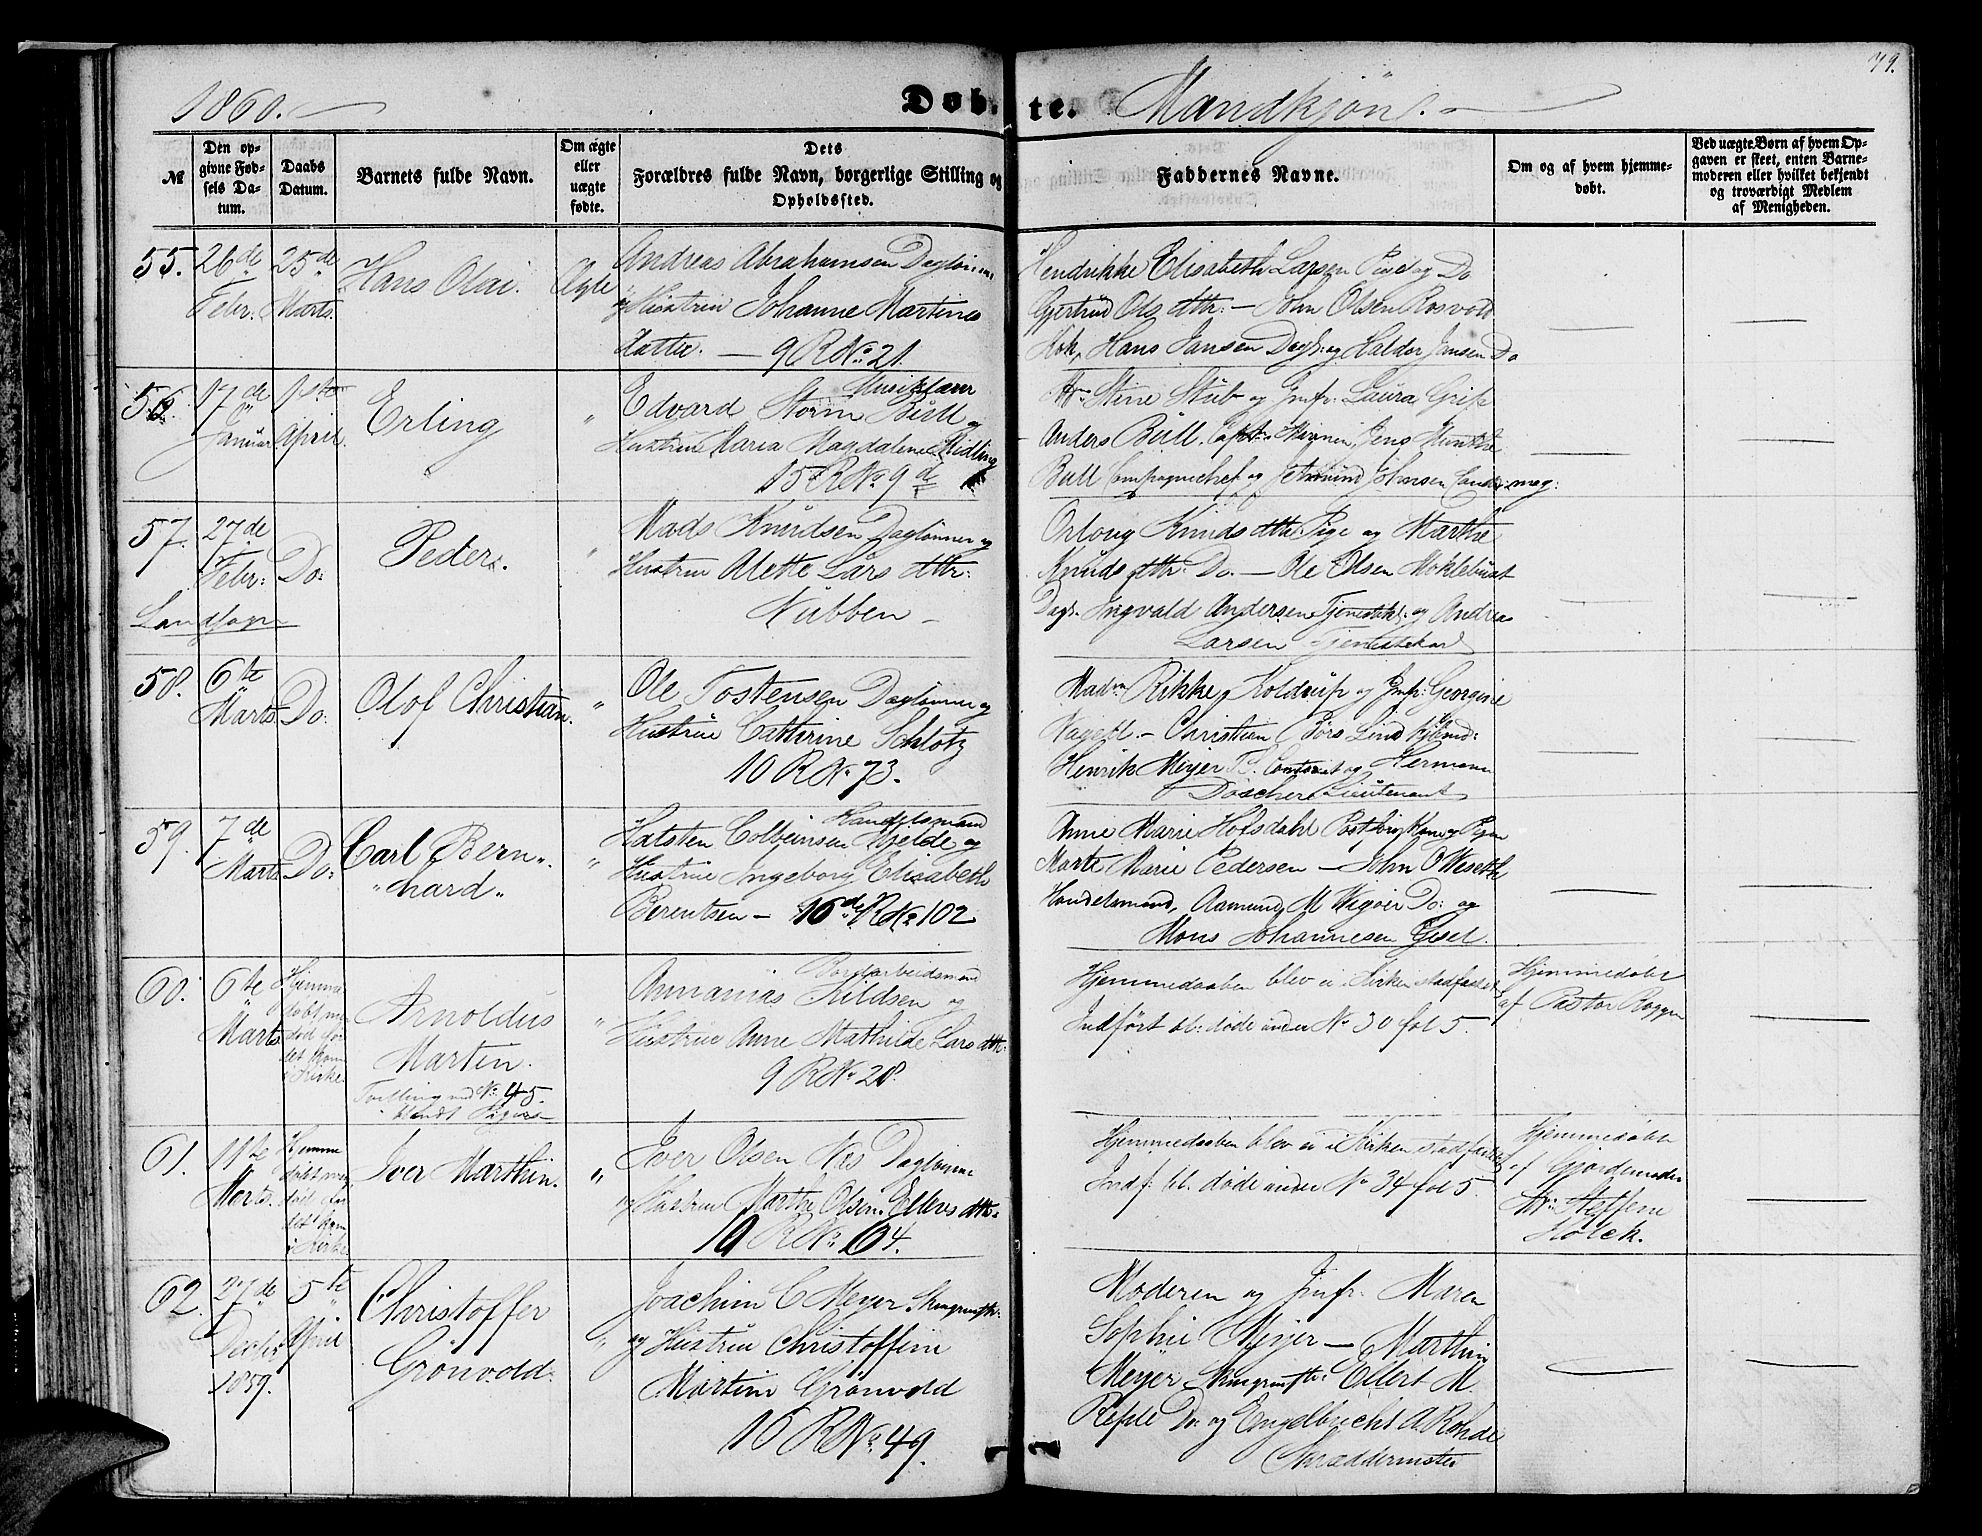 79.
1860.
Døbte. Mandkjøn.
№
Den opgivne Fødsels Datum.
Daabs Datum.
Barnets fulde Navn.
Om ægte eller uægte fødte.
Dets Forældres fulde Navn, borgerlige Stilling og Opholdssted.
Faddernes Navne.
Om og af hvem hjemmedøbt.
Ved uægte Børn af hvem Opgaven er skeet, enten Barnemoderen eller hvilket bekjendt og troværdigt Medlem af Menigheden.
55. 26de Febr. 25de Marts. Hans Olai. Ægte
Andreas Abrahamsen Daglønner
og Hustrue Johanne Martine
9 R No 21.
Hendrikke Elisabeth Larsen Pige og Do
Gjertrud Ols dtr. – John Olsen Rosvold
Hans Jansen Dagl: og Haldor Jansen Do
56. 17de Januar 1ste April. Erling "
Edvard Storm Bull og
Hustrue Maria Magdalene
15 R No 9de
Stine Stub og Jmfr. Laura Grip
Anders Bull. Jens Munthe
Bull Compagniechef og Johnsen
57. 27de Febr: Do: Peder. "
Landsogn
Mads Knudsen Daglønner og
Hustrue Alette Lars dtr:
Nubben –
Knuds dtr Pige og Marthe
Knuds dtr. Do. – Ole Olsen Moklebust
Dagl. Ingvald Andersen Tjenestek: og Andreas
Larsen Tjenestekarl
58. 6te Marts Do: Olof Christian. "
Ole Tostensen Daglønner og
Hustrue Cathrine Schlotz
10 R No 73.
Madm Rikke Koldrup og Jmfr: Georgine
Nagel. – Christian Børs Lind
Henrik Meyer og Herman
Døscher Lieutenant
59. 7de Marts Do: Carl Bern„ „hard„ "
Handelsmand
Halsten Colbeinsen Hjelde og
Hustrue Ingeborg Elisabeth
Berentsen – 16de R No 102
Anne Marie Hofsdahl og Pigen
Marte Marie Pedersen – John O
Handelsmand, Aamund M Do: og
Mons Johannesen
60. 6te Marts Hjemmedøbt
det kom i Kirke
Arnoldus
Martin.
Tvilling med No 45.
blandt Pigerne
"
Ananias Kildsen og
Hustrue Anne Mathilde Lars dtr:
9 R No 28.
Hjemmedaaben blev ei i Kirken stadfæstet
Indført bl: døde under No 30 fol 5.
Hjemmedøbt
af Pastor
61. 11te Marts. Hjemmedøbt
det kom i Kirke
Iver Marthin. "
Iver Olsen Næs Daglønner
og Hustrue Marthe Olsen Ellers dtr.
10 R No 64.
Hjemmedaaben blev ei i Kirken stadfæstet
Indf: bl. døde under No 34 fol 5.
Hjemmedøbt
af Gjordemoder
Steffine
Holck.
62. 27de Decbr 1859. 5te April Christoffer
Grønvold. "
Joachim C Meyer
og Hustrue Christoffine
Martine Grønvold
10 R No 49.
Moderen og Jmfr. Maren
Sophie Meyer – Marthin
Meyer Ellert M.
Do. og Engelbrecht A Rohde
Skræddermester